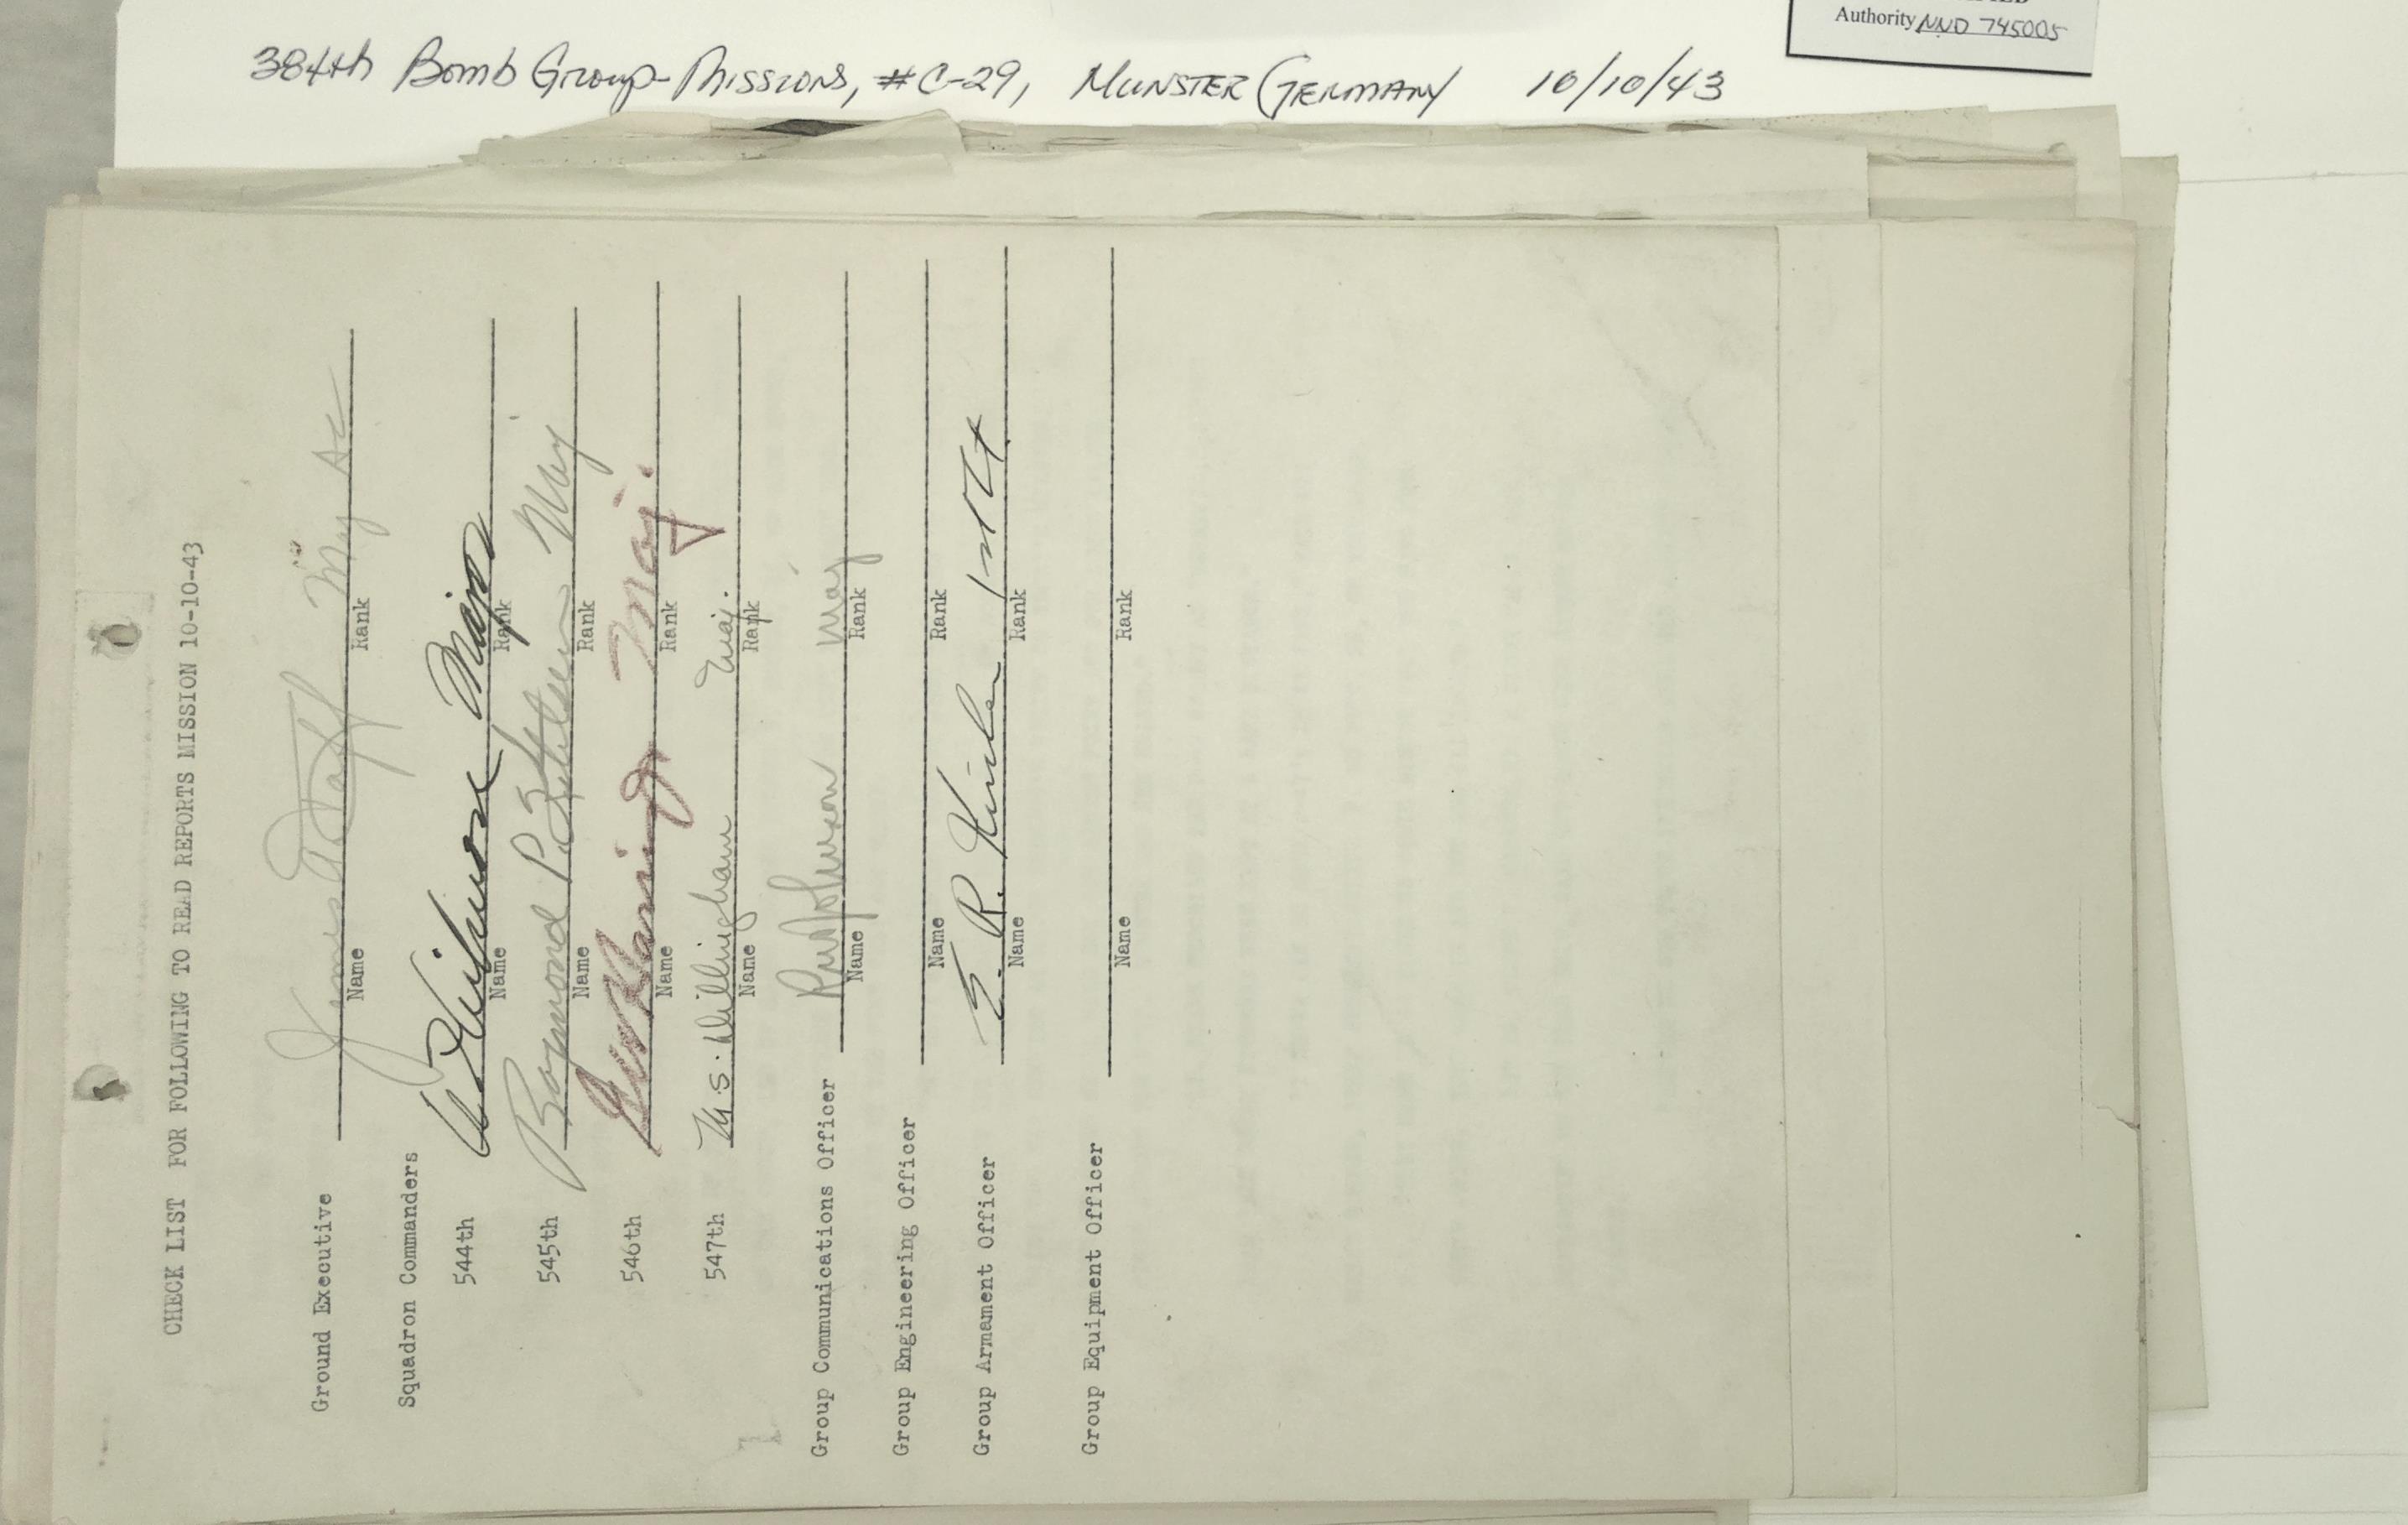 Authority NND 745005
384th Bomb Group-Missions, #C-29, MUNSTER GERMANY 10/10/43
CHECK LIST FOR FOLLOWING TO READ REPORTS MISSION 10-10-43
Ground Executive Maj AC
Name Rank
Squadron Commanders
544th Major
Name Rank
545th Raymond P. Maj
Name Rank
546th Maj.
Name Rank
547th M.S. Dillingham Maj.
Name Rank
Group Communications Officer Maj
Name Rank
Group Engineering Officer
Name Rank
Group Armament Officer E. R. 1st Lt.
Name Rank
Group Equipment Officer
Name Rank